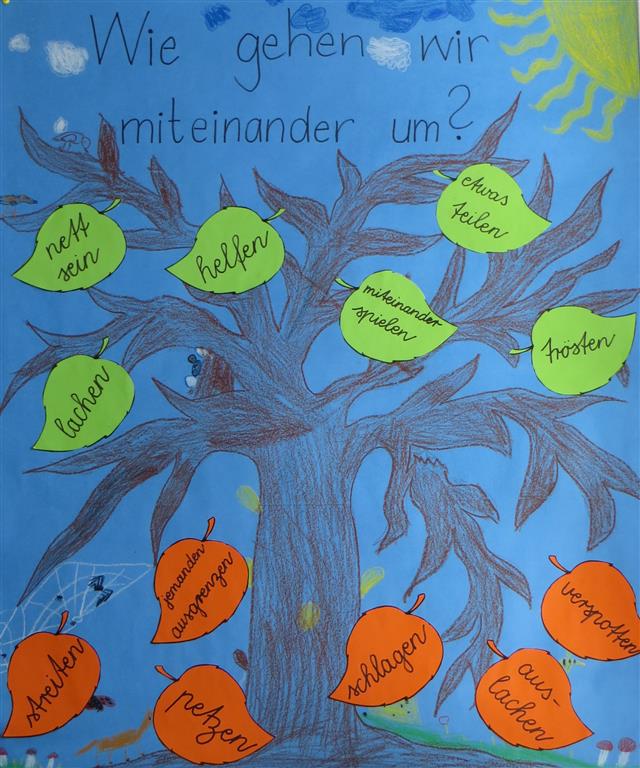 Wie gehen wir
miteinander um?
nett
sein
helfen
etwas
teilen
miteinander
spielen
trösten
lachen
jemanden
ausgrenzen
streiten
petzen
schlagen
aus-
lachen
verspotten